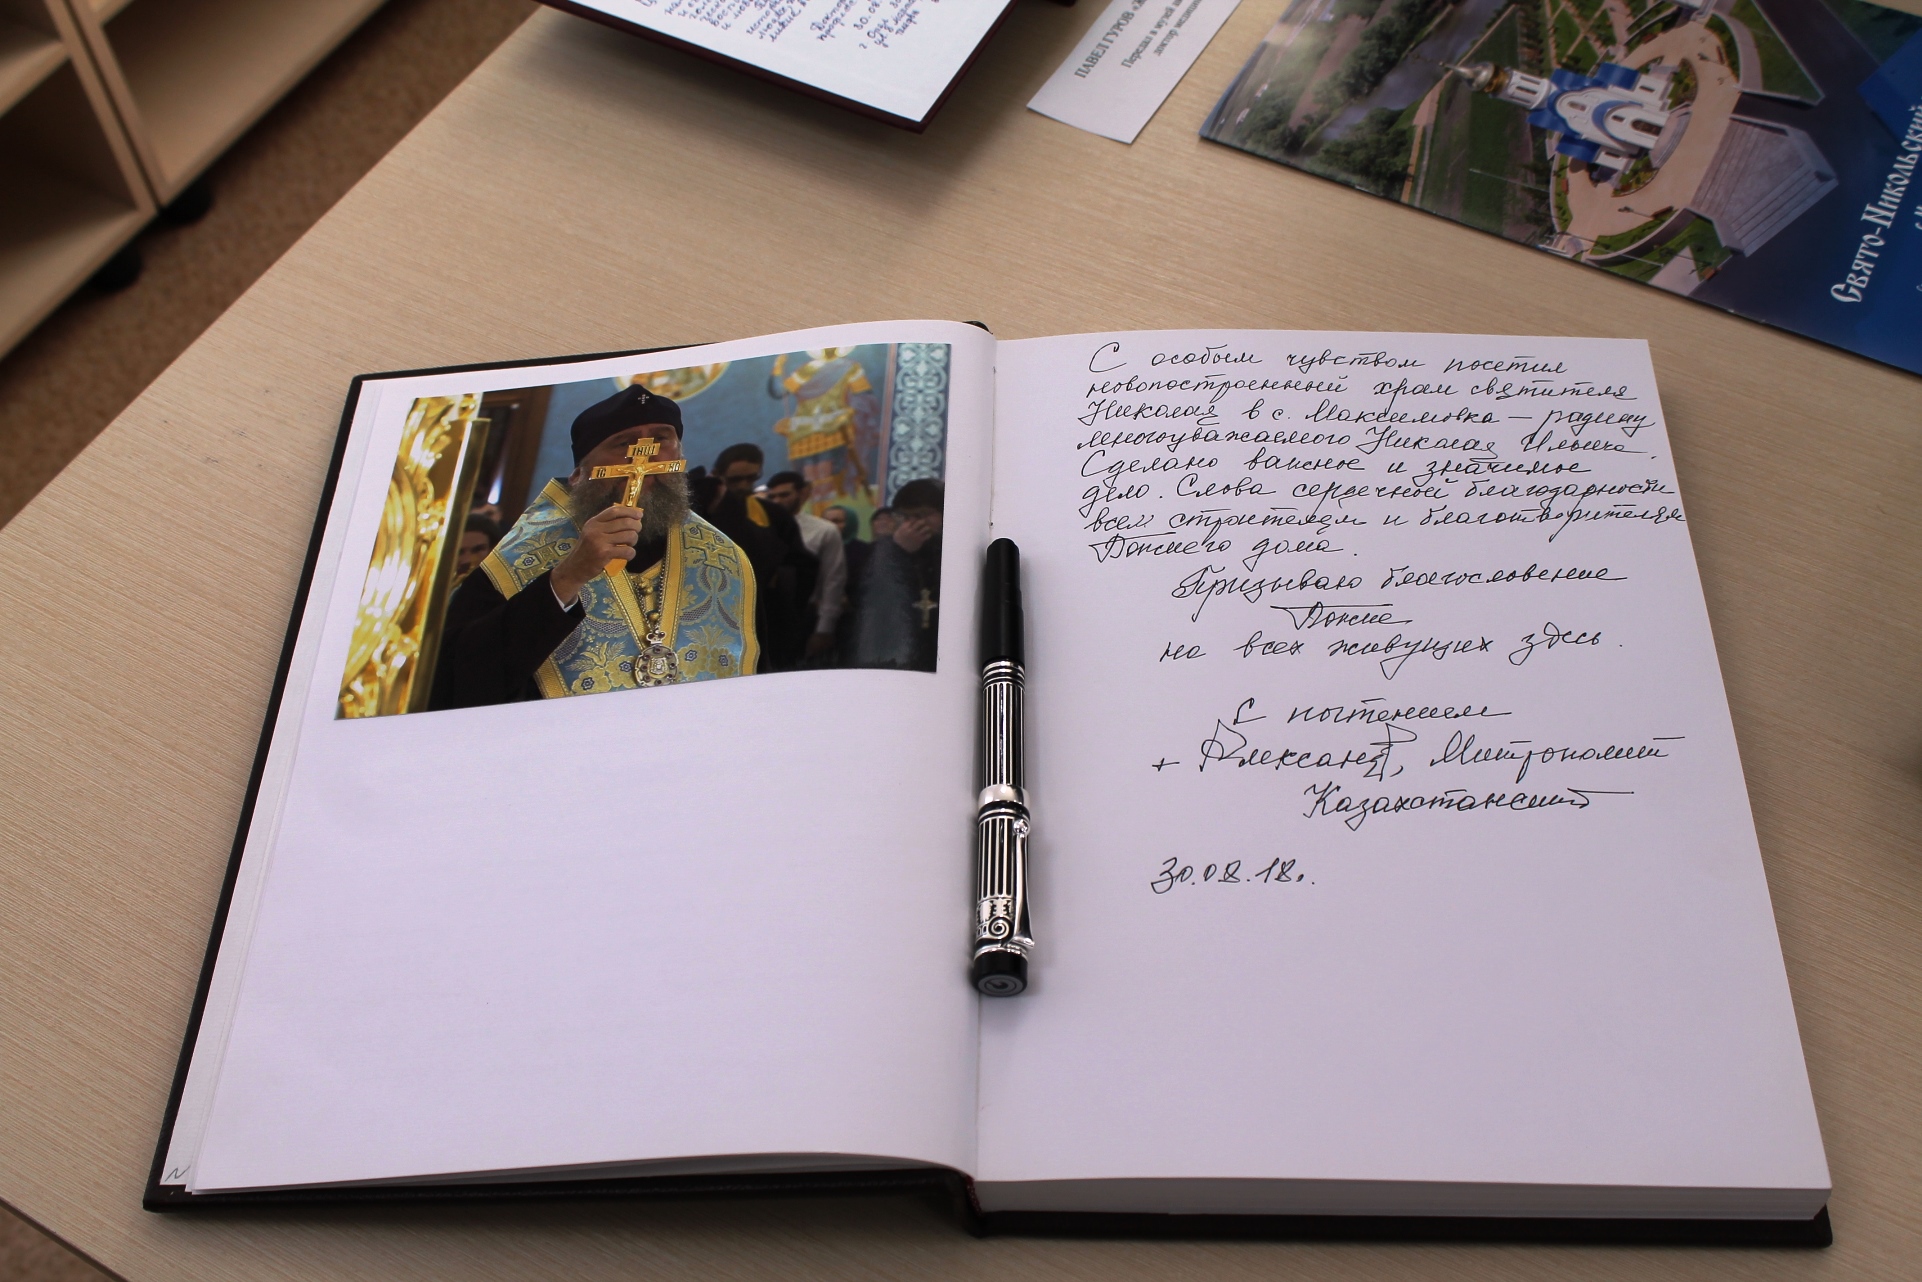 30.08.
г. О
ПАВЕЛ ГУРОВ
Передал в музей
доктор
Свято-Никольский
ІНЦІ
ІС ХС
С особым чувством посетил
новопостроенный храм святителя
Николая в с. Максимовка — родину
многоуважаемого Николая Ильича.
Сделано важное и значимое
дело. Слова сердечной благодарности
всем строителям и благотворителям
Божиего дома.
Призываю благословение
Божие
на всех живущих здесь.
С почтением
+ Александр, Митрополит
Казахстанский
30.08.18г.